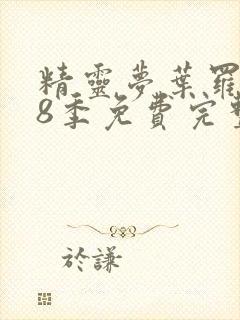 精靈夢葉羅
8季免費完整
於謙